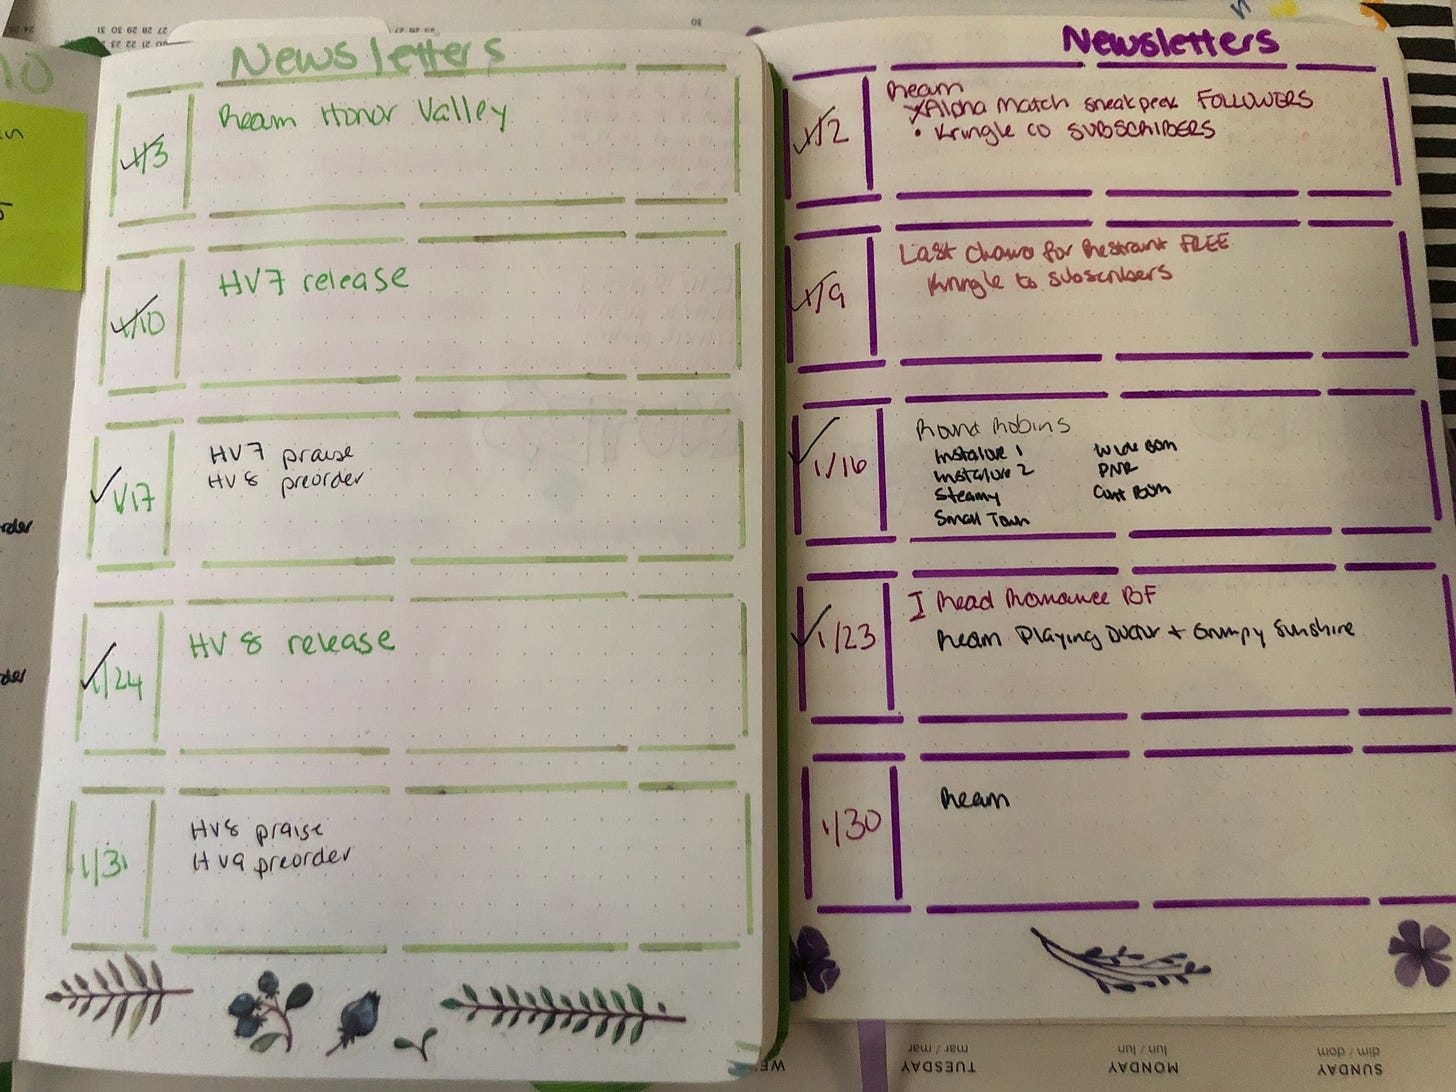 Newsletters
1/3
Ream Honor Valley
1/10
HV7 release
1/17
HV7 praise
HV8 preorder
1/24
HV 8 release
1/31
HV8 praise
HV9 preorder
Newsletters
1/2
Ream
Alpha Match sneak peek FOLLOWERS
• Kringle co SUBSCRIBERS
1/9
Last chance for Restraint FREE
Kringle to subscribers
1/16
Round Robins
Instalove 1
Instalove 2
Steamy
Small Town
Wide Rom
PNR
Cont Rom
1/23
I Read Romance BF
Ream Playing Doctor + Grumpy Sunshine
1/30
Ream
TUESDAY
mar / mar
MONDAY
lun / lun
SUNDAY
dim / dom